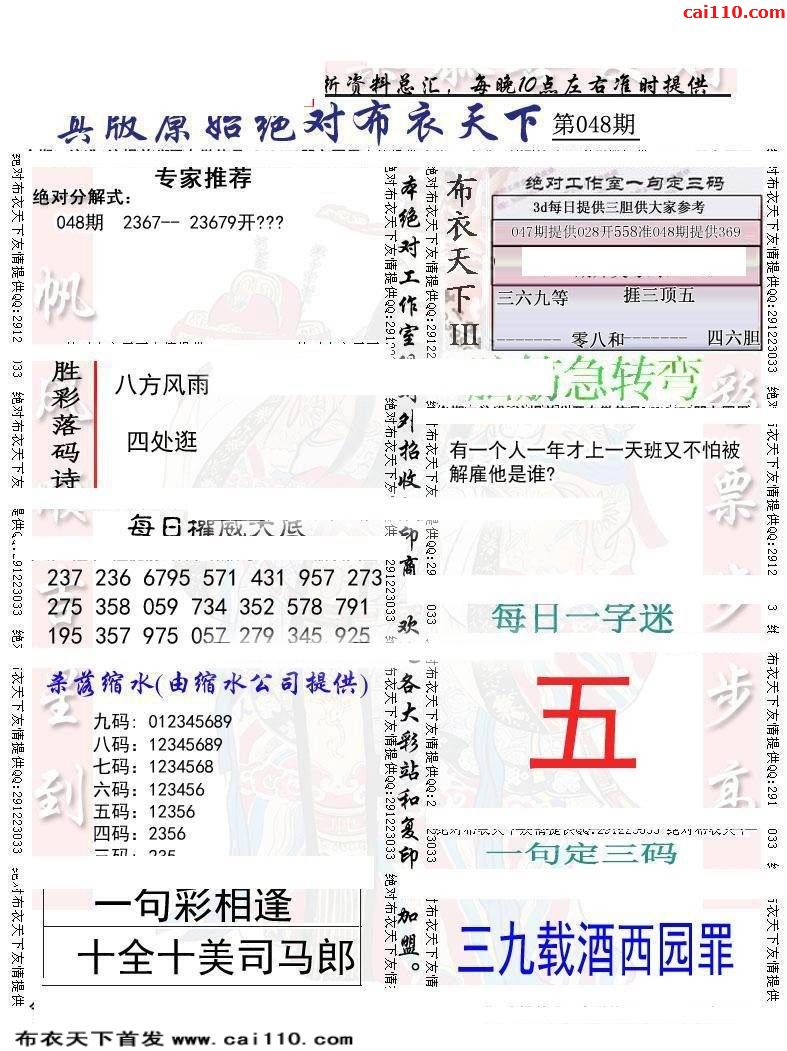 cai110.com
析资料总汇，每晚10点左右准时提供
真版原始绝对布衣天下 第048期
专家推荐
绝对分解式：
048期 2367-- 23679开???
本绝对工作室
布衣天下III
绝对工作室一句定三码
3d每日提供三胆供大家参考
047期提供028开558准048期提供369
三六九等 捱三顶五
-------- 零八和-------- 四六胆
急转弯
胜彩落码诗
八方风雨
四处逛
对外招收
有一个人一年才上一天班又不怕被
解雇他是谁?
每日权威大底
237 236 6795 571 431 957 273
275 358 059 734 352 578 791
195 357 975 057 279 345 925
每日一字迷
五
杀落缩水(由缩水公司提供)
九码: 012345689
八码: 12345689
七码: 1234568
六码: 123456
五码: 12356
四码: 2356
三码: 235
各大彩站和复印
加盟。
一句定三码
三九载酒西园罪
一句彩相逢
十全十美司马郎
绝对布衣天下友情提供QQ:291223033
布衣天下首发 www.cai110.com